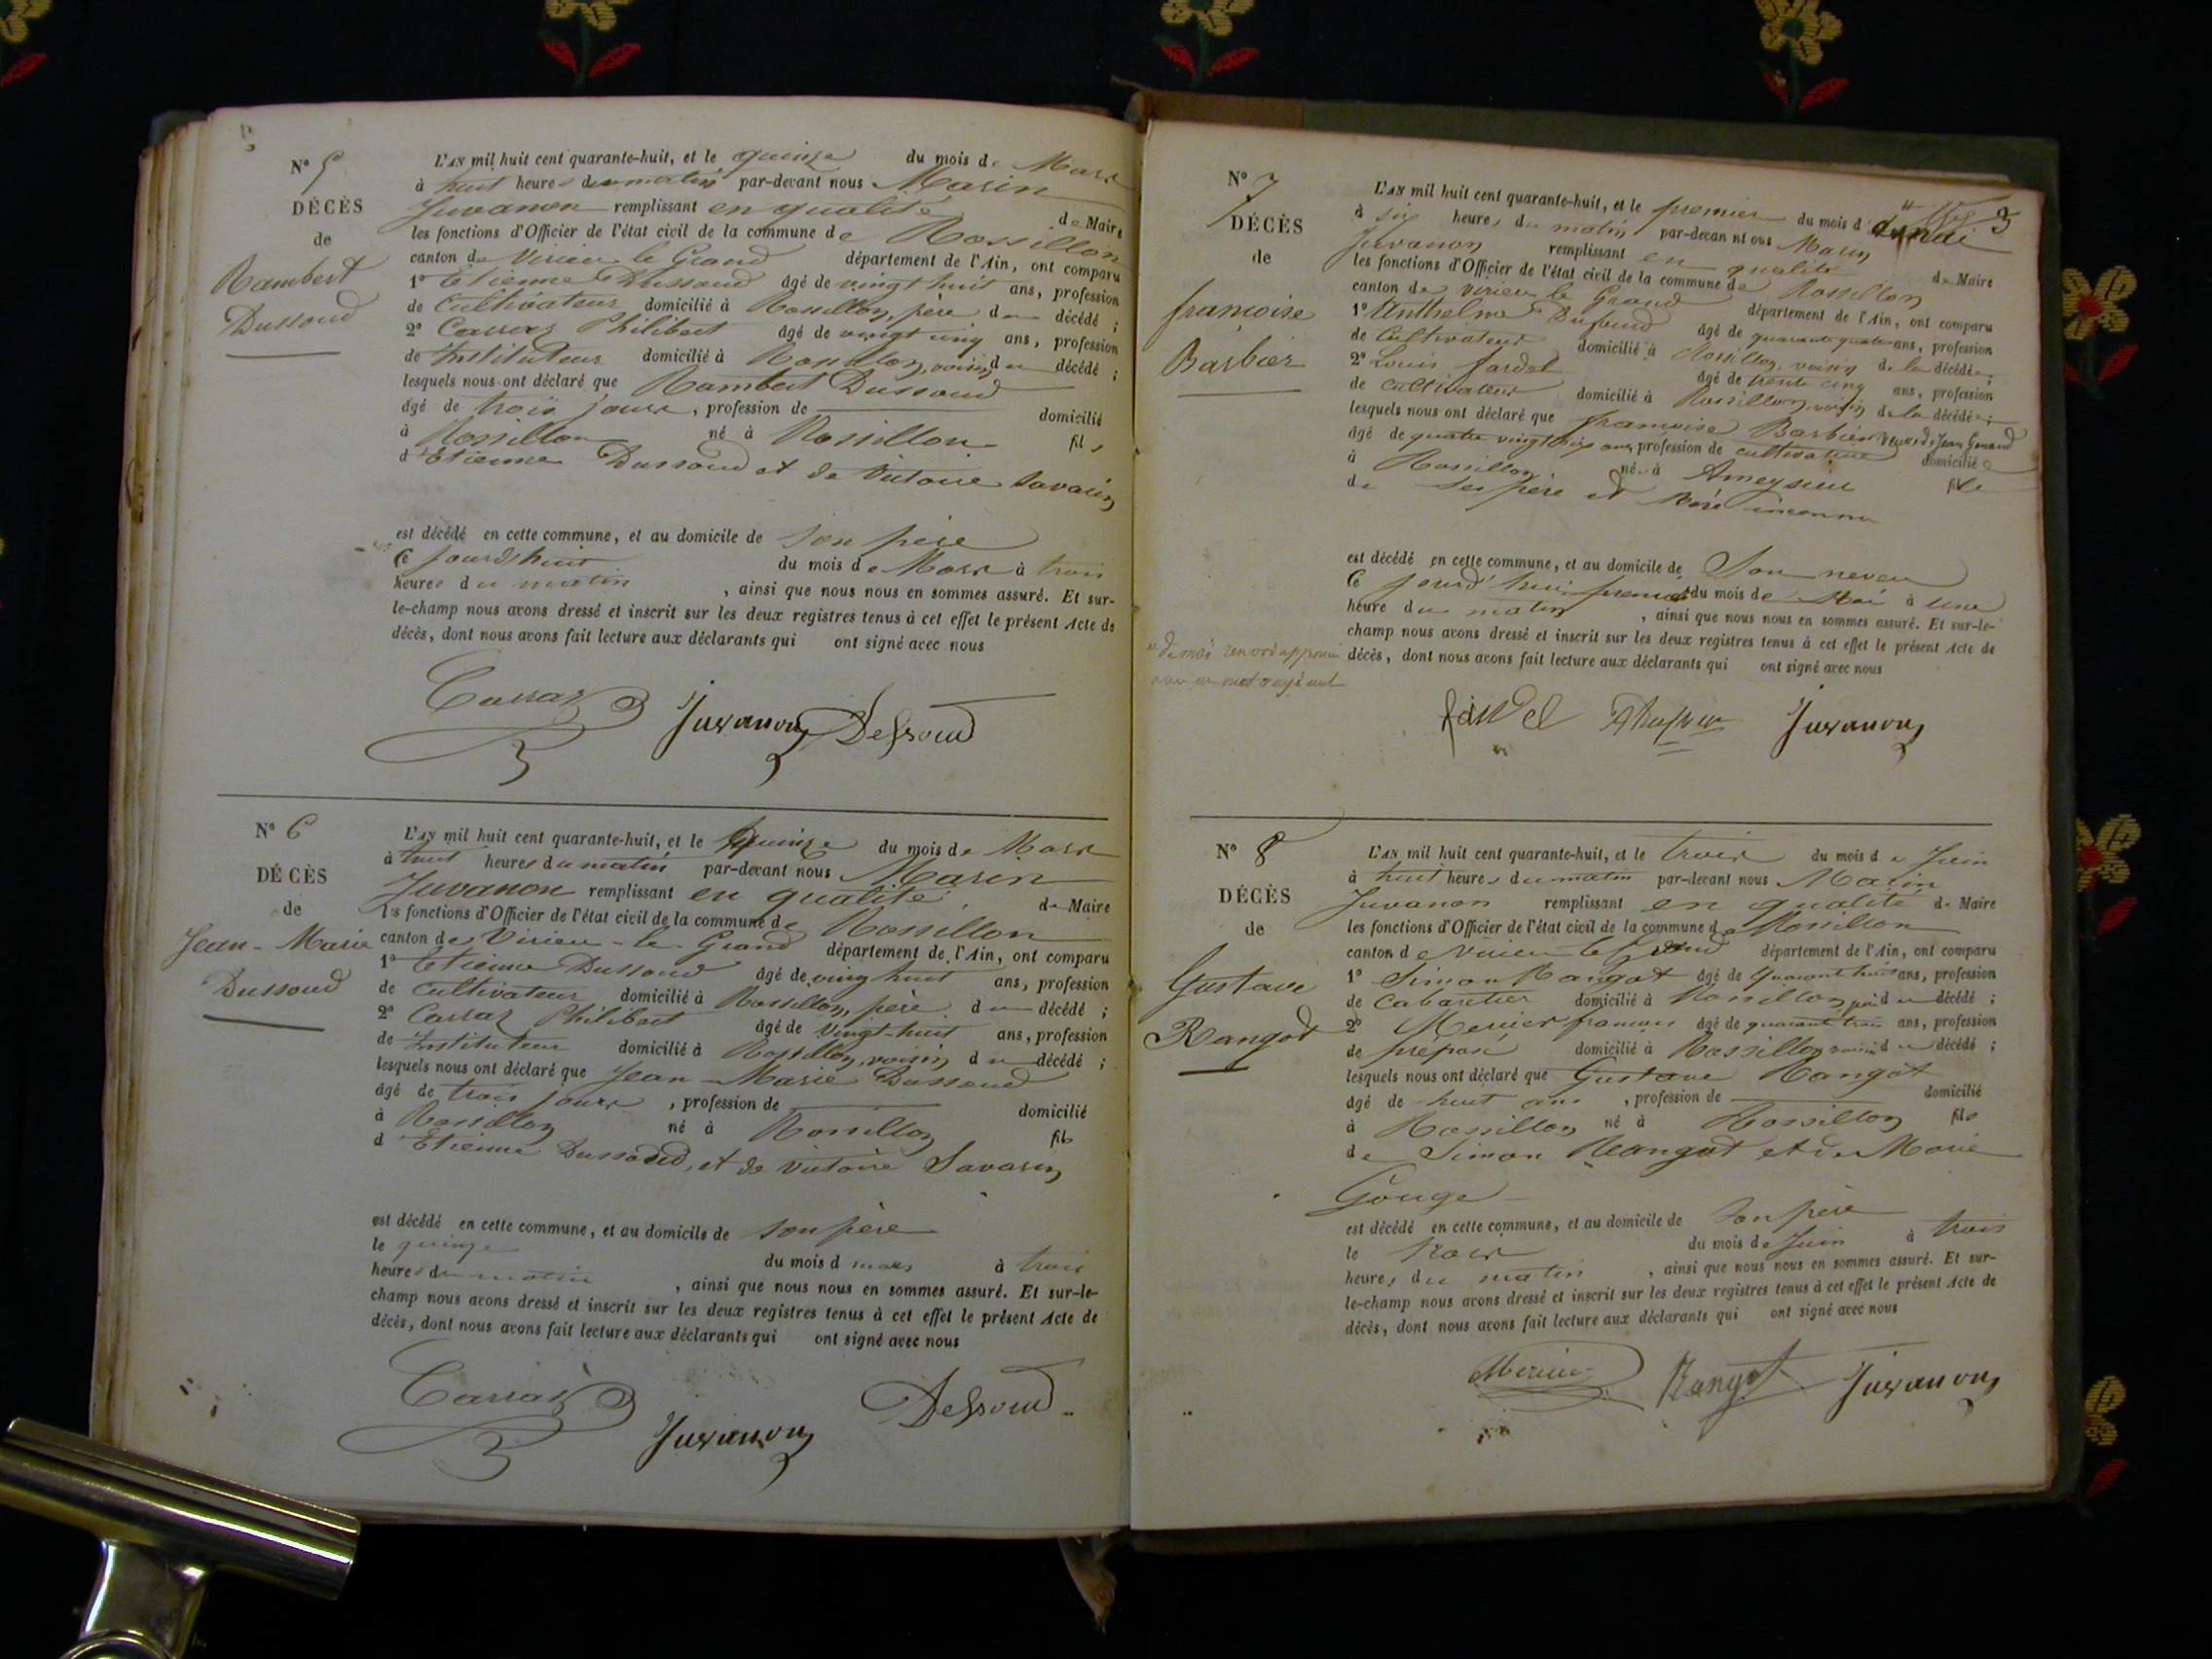 N° 5
DÉCÈS
de
Rambert
Dussoud
L'AN mil huit cent quarante-huit, et le quinze du mois de Mars
à huit heures du matin par-devant nous Marin
Juvanon remplissant en qualité de Maire
les fonctions d'Officier de l'état civil de la commune de Rossillon
canton de Virieu le Grand département de l'Ain, ont comparu
1° Etienne Dussoud âgé de vingt huit ans, profession
de Cultivateur domicilié à Rossillon, père du décédé ;
2° Carraz Philibert âgé de vingt cinq ans, profession
de Instituteur domicilié à Rossillon, voisin du décédé ;
lesquels nous ont déclaré que Rambert Dussoud
âgé de trois jours, profession de domicilié
à Rossillon né à Rossillon fils
d'Etienne Dussoud et de Victoire Savarin
est décédé en cette commune, et au domicile de son père
Ce jourd'huit du mois de Mars à trois
heures du matin , ainsi que nous nous en sommes assuré. Et sur-
le-champ nous avons dressé et inscrit sur les deux registres tenus à cet effet le présent Acte de
décès, dont nous avons fait lecture aux déclarants qui ont signé avec nous
Carraz Juvanon Dessoud
N° 6
DÉCÈS
de
Jean-Marie
Dussoud
L'AN mil huit cent quarante-huit, et le quinze du mois de Mars
à huit heures du matin par-devant nous Marin
Juvanon remplissant en qualité de Maire
les fonctions d'Officier de l'état civil de la commune de Rossillon
canton de Virieu-le-Grand département de l'Ain, ont comparu
1° Etienne Dussoud âgé de vingt huit ans, profession
de Cultivateur domicilié à Rossillon, père du décédé ;
2° Carraz Philibert âgé de vingt-huit ans, profession
de Instituteur domicilié à Rossillon, voisin du décédé ;
lesquels nous ont déclaré que Jean-Marie Dussoud
âgé de trois jours , profession de domicilié
à Rossillon né à Rossillon fils
d'Etienne Dussoud, et de Victoire Savarin
est décédé en cette commune, et au domicile de son père
le quinze du mois d mars à trois
heures du matin , ainsi que nous nous en sommes assuré. Et sur-le-
champ nous avons dressé et inscrit sur les deux registres tenus à cet effet le présent Acte de
décès, dont nous avons fait lecture aux déclarants qui ont signé avec nous
Carraz Juvanon Dessoud
3
N° 7
DÉCÈS
de
françoise
Barbier
L'AN mil huit cent quarante-huit, et le premier du mois d de mai
à six heures du matin par-devan nt ous Marin
Juvanon remplissant en qualité de Maire
les fonctions d'Officier de l'état civil de la commune de Rossillon
canton de Virieu le Grand département de l'Ain, ont comparu
1° Anthelme âgé de quarante quatre ans, profession
de Cultivateur domicilié à Rossillon, voisin de la décédée ;
2° Louis fardel âgé de trente cinq ans, profession
de Cultivateur domicilié à Rossillon, voisin de la décédée ;
lesquels nous ont déclaré que françoise Barbier veuve de Jean
âgé de quatre vingt ans, profession de cultivateur domicilié
à Rossillon né à Ameyzieu fille
de ses père et Mère inconnu
est décédé en cette commune, et au domicile de Son neveu
Ce jourd'hui premier du mois de Mai à une
heure du matin , ainsi que nous nous en sommes assuré. Et sur-le-
champ nous avons dressé et inscrit sur les deux registres tenus à cet effet le présent Acte de
décès, dont nous avons fait lecture aux déclarants qui ont signé avec nous
de mai renvoi approuvé
un mot rayé nul
fardel Juvanon
N° 8
DÉCÈS
de
Gustave
Rangot
L'AN mil huit cent quarante-huit, et le trois du mois de Juin
à huit heures du matin par-devant nous Marin
Juvanon remplissant en qualité de Maire
les fonctions d'Officier de l'état civil de la commune de Rossillon
canton de Virieu le Grand département de l'Ain, ont comparu
1° Simon Rangot âgé de quarante huit ans, profession
de Cabaretier domicilié à Rossillon père du décédé ;
2° Mercier françois âgé de quarante trois ans, profession
de préposé domicilié à Rossillon voisin du décédé ;
lesquels nous ont déclaré que Gustave Rangot
âgé de huit ans , profession de domicilié
à Rossillon né à Rossillon fils
de Simon Rangot et de Marie
Gouge
est décédé en cette commune, et au domicile de son père
le trois du mois de Juin à trois
heures du matin , ainsi que nous nous en sommes assuré. Et sur-
le-champ nous avons dressé et inscrit sur les deux registres tenus à cet effet le présent Acte de
décès, dont nous avons fait lecture aux déclarants qui ont signé avec nous
Mercier Rangot Juvanon